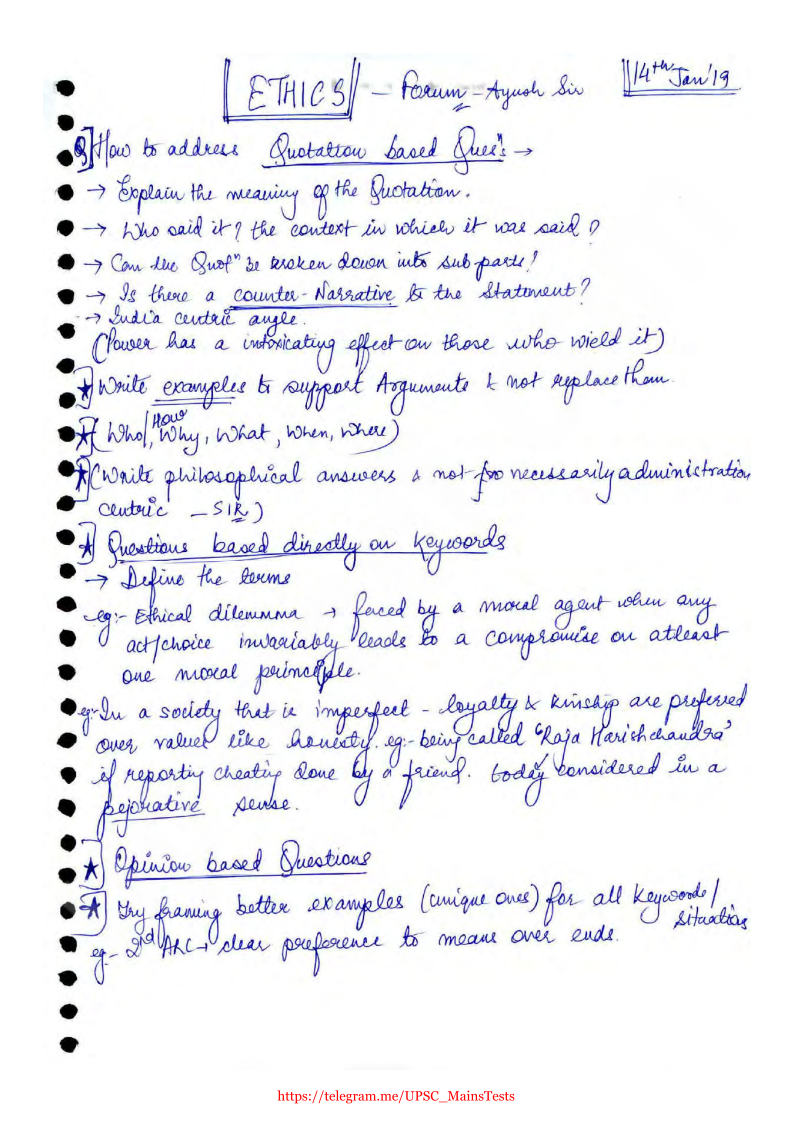 ETHICS - Forum - Ayush Sir 14th Jan'19
Q] How to address Quotation based Quesns →
→ Explain the meaning of the Quotation.
→ Who said it? the context in which it was said?
→ Can the Quotn be broken down into sub parts!
→ Is there a counter-Narrative to the Statement?
→ India centric angle.
(Power has a intoxicating effect on those who wield it)
★ Write examples to support Arguments & not replace them.
★ (Who/How, Why, What, When, Where)
★ (Write philosophical answers & not necessarily administration
centric - SIR)
★ Questions based directly on Keywords
→ Define the terms
eg:- Ethical dilemmma → faced by a moral agent when any
act/choice invariably leads to a compromise on atleast
one moral principle.
eg:- In a society that is imperfect - loyalty & kinship are preferred
over values like honesty. eg:- being called 'Raja Harishchandra'
if reporting cheating done by a friend. today considered in a
pejorative sense.
★ Opinion based Questions
★ Try framing better examples (unique ones) for all Keywords/
Situations
eg- 2nd ARC → clear preference to means over ends.
https://telegram.me/UPSC_MainsTests